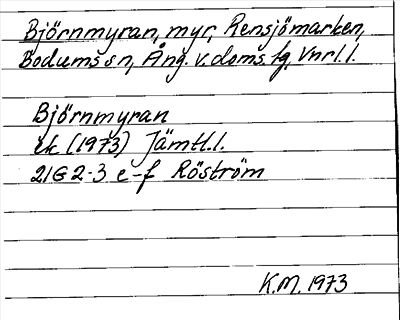 Björnmyran, myr, Rensjömarken,
Bodums sn, Ång. v. doms. fg, Vnrl. l.
Björnmyran
ek (1973) Jämtl. l.
21G 2-3 e-f Röström
K.M. 1973